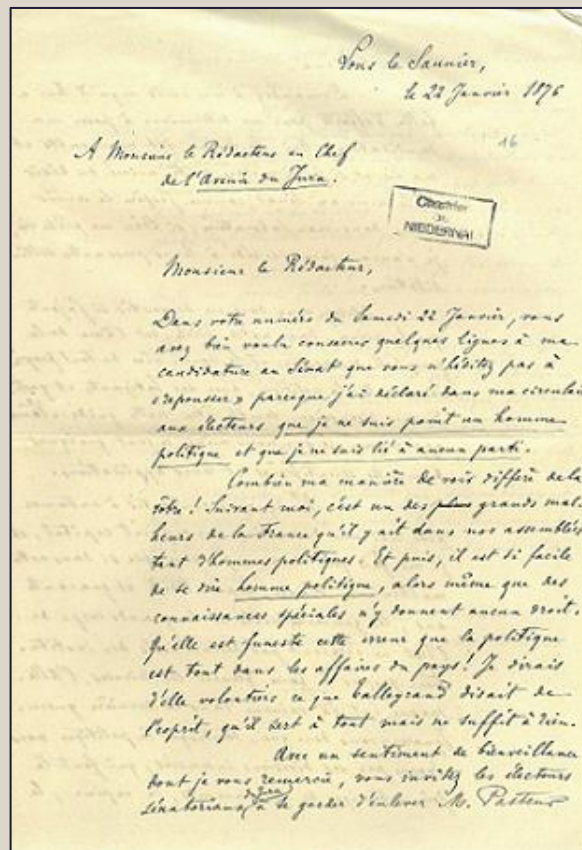 Lons le Saunier,
le 22 Janvier 1876
16
A Monsieur le Rédacteur en Chef
de l'Avenir du Jura.
NIEDERNAI
Monsieur le Rédacteur,
Dans votre numéro du Samedi 22 Janvier, vous
avez bien voulu consacrer quelques lignes à ma
candidature au Sénat que vous n'hésitez pas à
« repousser » parceque j'ai déclaré dans ma circulaire
aux électeurs que je ne suis point un homme
politique et que je ne suis lié à aucun parti.
Combien ma manière de voir diffère de la
vôtre ! Suivant moi, c'est un des plus grands mal-
heurs de la France qu'il y ait dans nos assemblées
tant d'hommes politiques. Et puis, il est si facile
de se dire homme politique, alors même que des
connaissances spéciales n'y donnent aucun droit.
Qu'elle est funeste cette erreur que la politique
est tout dans les affaires du pays ! Je dirais
d'elle volontiers ce que Talleyrand disait de
l'esprit, qu'il sert à tout mais ne suffit à rien.
Avec un sentiment de bienveillance
dont je vous remercie, vous invitez les électeurs
sénatoriaux à se garder d'enlever M. Pasteur